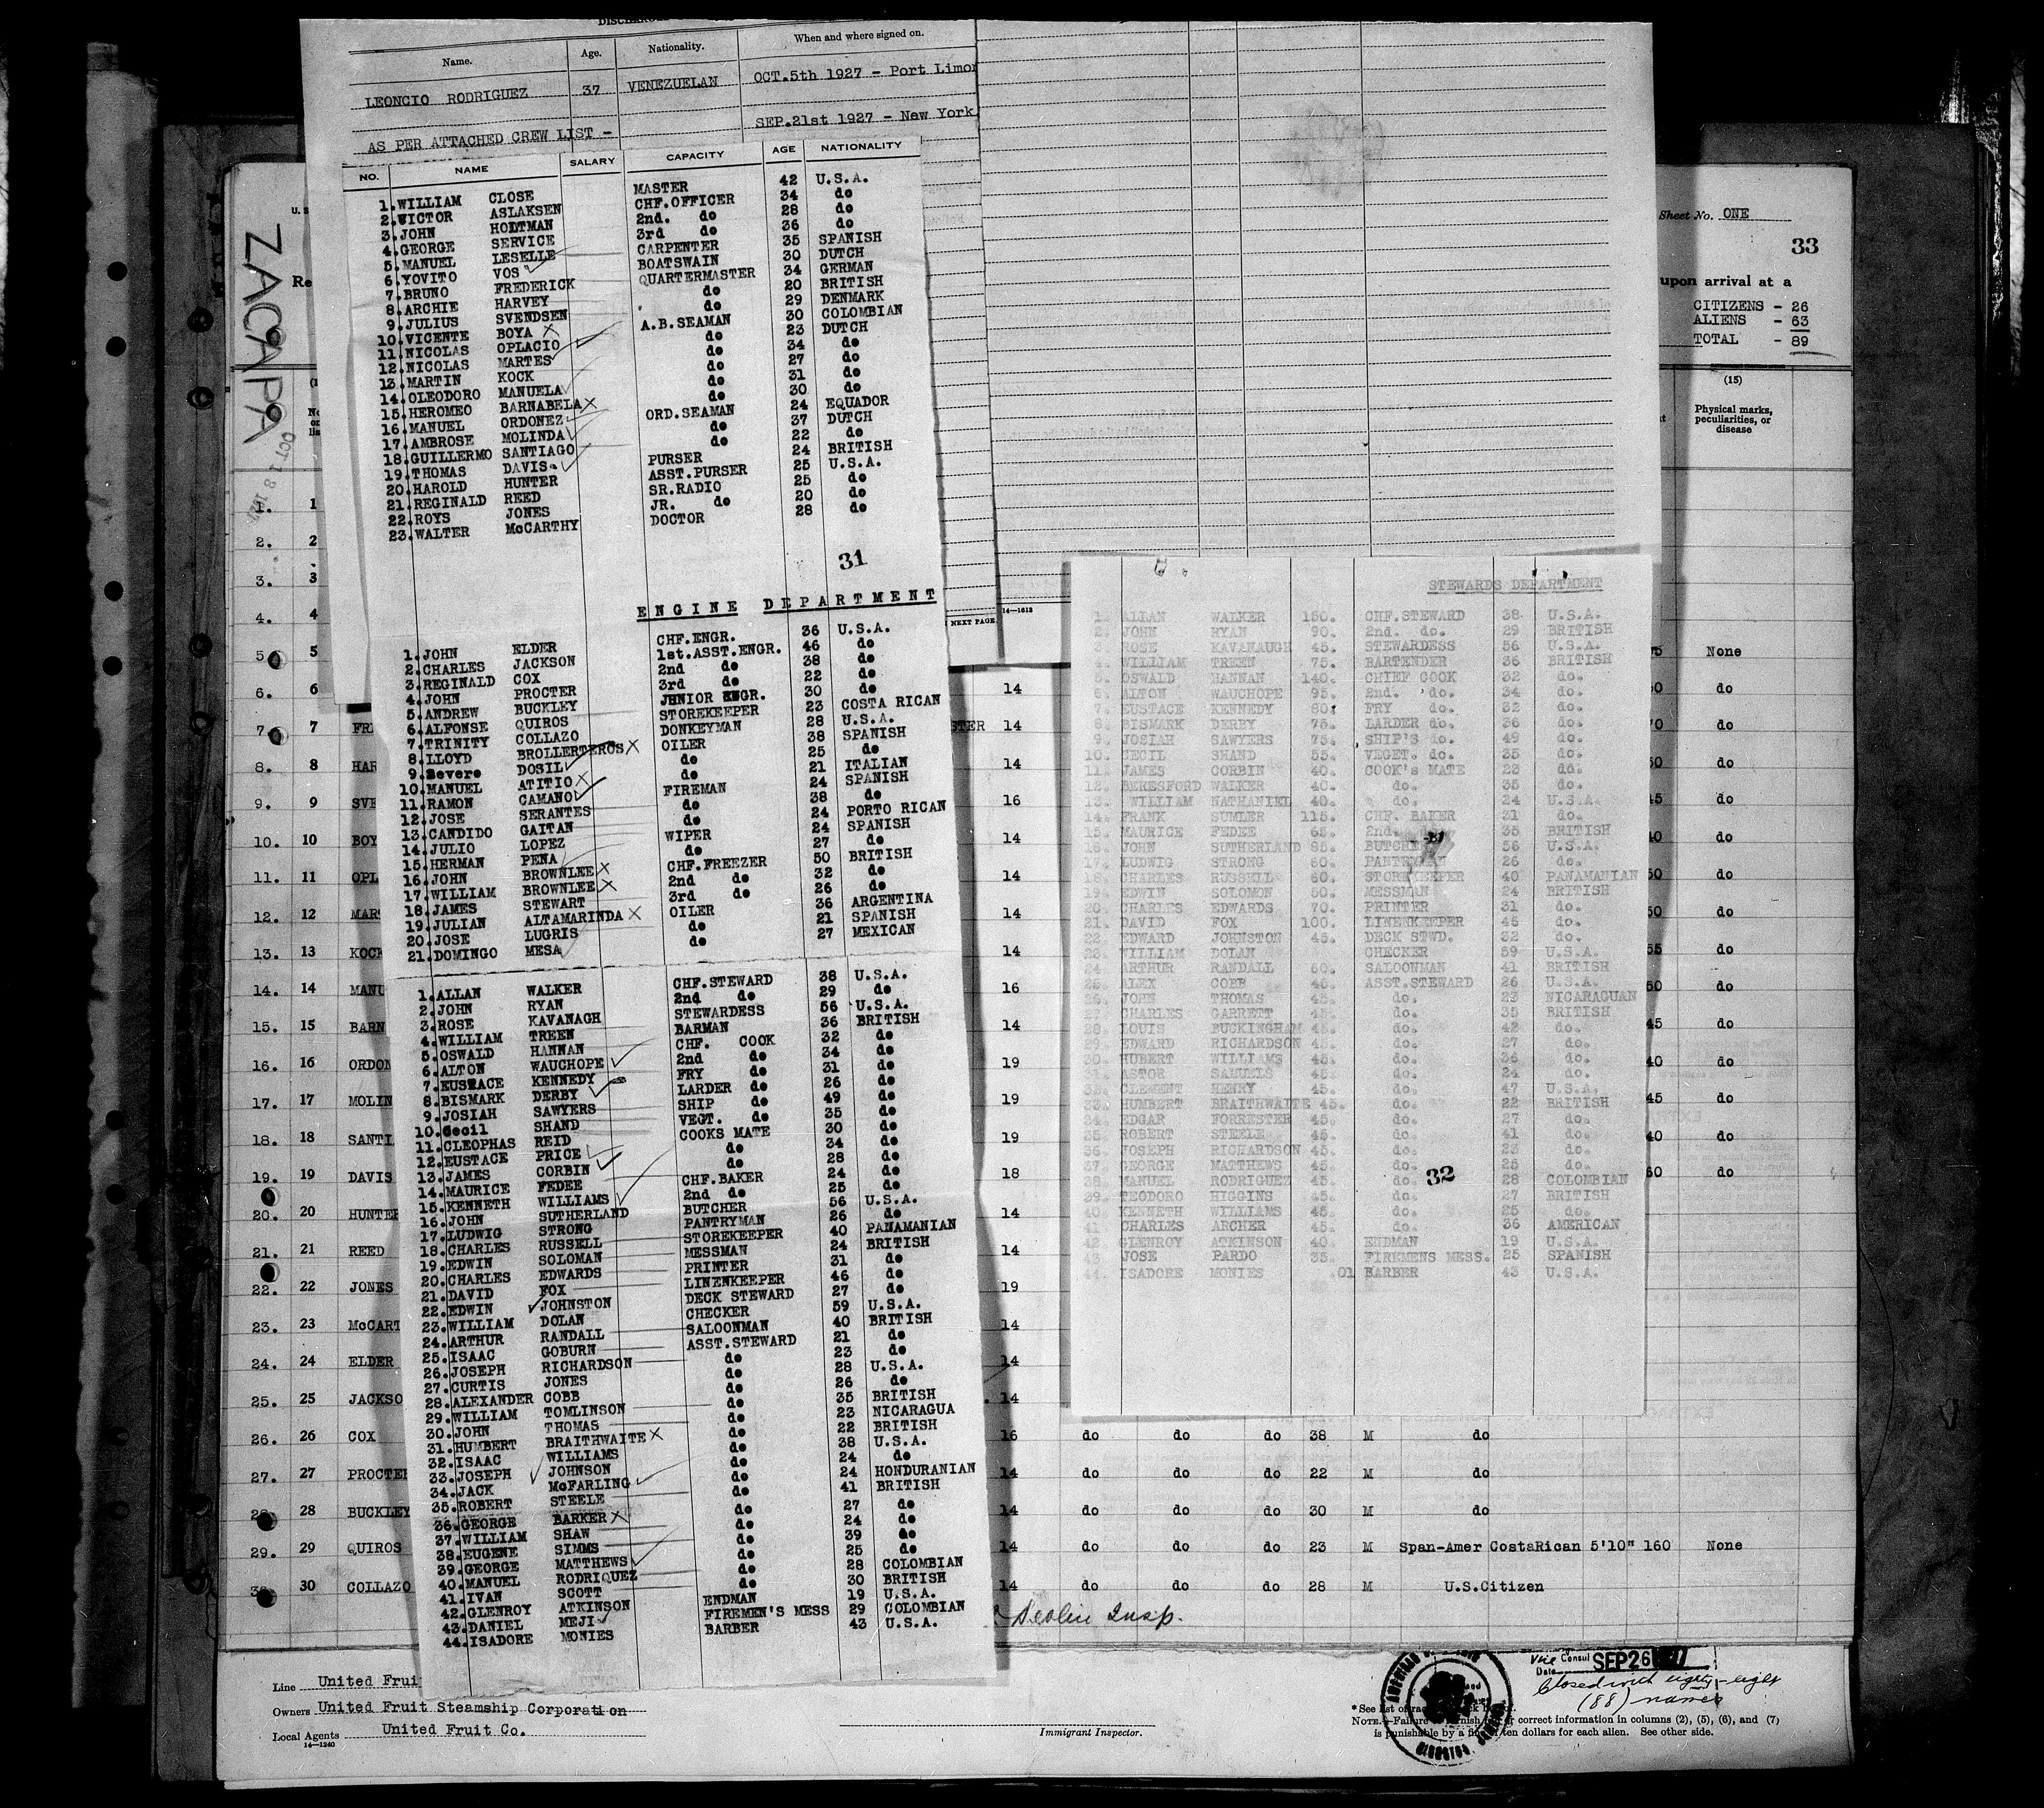 Name. Age. Nationality. When and where signed on.
LEONCIO RODRIGUEZ 37 VENEZUELAN OCT.5th 1927 - Port Limon
SEP.21st 1927 - New York
AS PER ATTACHED CREW LIST -
NO. NAME SALARY CAPACITY AGE NATIONALITY
1. WILLIAM CLOSE MASTER 42 U.S.A.
2. VICTOR ASLAKSEN CHF.OFFICER 34 do
3. JOHN HOLTMAN 2nd. do 28 do
4. GEORGE SERVICE 3rd do 36 do
5. MANUEL LESELLE CARPENTER 35 SPANISH
6. YOVITO VOS BOATSWAIN 30 DUTCH
7. BRUNO FREDERICK QUARTERMASTER 34 GERMAN
8. ARCHIE HARVEY do 20 BRITISH
9. JULIUS SVENDSEN do 29 DENMARK
10. VICENTE BOYA A.B.SEAMAN 30 COLOMBIAN
11. NICOLAS OPLACIO do 23 DUTCH
12. NICOLAS MARTES do 34 do
13. MARTIN KOCK do 27 do
14. OLEODORO MANUELA do 31 do
15. HEROMEO BARNABELA do 30 do
16. MANUEL ORDONEZ ORD.SEAMAN 24 EQUADOR
17. AMBROSE MOLINDA do 37 DUTCH
18. GUILLERMO SANTIAGO do 22 do
19. THOMAS DAVIS PURSER 24 BRITISH
20. HAROLD HUNTER ASST.PURSER 25 U.S.A.
21. REGINALD REED SR.RADIO 25 do
22. ROYS JONES JR. do 20 do
23. WALTER McCARTHY DOCTOR 28 do
31
ENGINE DEPARTMENT
1. JOHN ELDER CHF.ENGR. 36 U.S.A.
2. CHARLES JACKSON 1st.ASST.ENGR. 46 do
3. REGINALD COX 2nd do 38 do
4. JOHN PROCTER 3rd do 22 do
5. ANDREW BUCKLEY JUNIOR ENGR. 30 do
6. ALFONSE QUIROS STOREKEEPER 23 COSTA RICAN
7. TRINITY COLLAZO DONKEYMAN 28 U.S.A.
8. LLOYD BROLLERTEROS OILER 38 SPANISH
9. Severo DOSIL do 25 do
10. MANUEL ATITIO do 21 ITALIAN
11. RAMON CAMANO FIREMAN 24 SPANISH
12. JOSE SERANTES do 38 do
13. CANDIDO GAITAN do 24 PORTO RICAN
14. JULIO LOPEZ WIPER 24 SPANISH
15. HERMAN PENA do 27 do
16. JOHN BROWNLEE CHF.FREEZER 50 BRITISH
17. WILLIAM BROWNLEE 2nd do 32 do
18. JAMES STEWART 3rd do 26 do
19. JULIAN ALTAMARINDA OILER 36 ARGENTINA
20. JOSE LUGRIS do 21 SPANISH
21. DOMINGO MESA do 27 MEXICAN
1. ALLAN WALKER CHF.STEWARD 38 U.S.A.
2. JOHN RYAN 2nd do 29 do
3. ROSE KAVANAGH STEWARDESS 56 U.S.A.
4. WILLIAM TREEN BARMAN 36 BRITISH
5. OSWALD HANNAN CHF. COOK 32 do
6. ALTON WAUCHOPE 2nd do 34 do
7. EUSTACE KENNEDY FRY do 31 do
8. BISMARK DERBY LARDER do 26 do
9. JOSIAH SAWYERS SHIP do 49 do
10. Cecil SHAND VEGT. do 35 do
11. CLEOPHAS REID COOKS MATE 30 do
12. EUSTACE PRICE do 34 do
13. JAMES CORBIN do 28 do
14. MAURICE FEDEE CHF.BAKER 24 do
15. KENNETH WILLIAMS 2nd do 25 do
16. JOHN SUTHERLAND BUTCHER 56 U.S.A.
17. LUDWIG STRONG PANTRYMAN 26 do
18. CHARLES RUSSELL STOREKEEPER 40 PANAMANIAN
19. EDWIN SOLOMAN MESSMAN 24 BRITISH
20. CHARLES EDWARDS PRINTER 31 do
21. DAVID FOX LINENKEEPER 46 do
22. EDWIN JOHNSTON DECK STEWARD 27 do
23. WILLIAM DOLAN CHECKER 59 U.S.A.
24. ARTHUR RANDALL SALOONMAN 40 BRITISH
25. ISAAC GOBURN ASST.STEWARD 21 do
26. JOSEPH RICHARDSON do 23 do
27. CURTIS JONES do 28 U.S.A.
28. ALEXANDER COBB do 26 do
29. WILLIAM TOMLINSON do 35 BRITISH
30. JOHN THOMAS do 23 NICARAGUA
31. HUMBERT BRAITHWAITE do 22 BRITISH
32. ISAAC WILLIAMS do 38 U.S.A.
33. JOSEPH JOHNSON do 24 do
34. JACK McFARLING do 24 HONDURANIAN
35. ROBERT STEELE do 41 BRITISH
36. GEORGE BARKER do 27 do
37. WILLIAM SHAW do 24 do
38. EUGENE SIMMS do 39 do
39. GEORGE MATTHEWS do 25 do
40. MANUEL RODRIQUEZ do 28 COLOMBIAN
41. IVAN SCOTT do 30 BRITISH
42. GLENROY ATKINSON ENDMAN 19 U.S.A.
43. DANIEL MEJI FIREMEN'S MESS 29 COLOMBIAN
44. ISADORE MONIES BARBER 43 U.S.A.
STEWARDS DEPARTMENT
1. ALLAN WALKER 150. CHF.STEWARD 38 U.S.A.
2. JOHN RYAN 90. 2nd. do. 29 BRITISH
3. ROSE KAVANAUGH 45. STEWARDESS 56 U.S.A.
4. WILLIAM TREEN 75. BARTENDER 36 BRITISH
5. OSWALD HANNAN 140. CHIEF COOK 32 do.
6. ALTON WAUCHOPE 95. 2nd. do. 34 do.
7. EUSTACE KENNEDY 80. FRY do. 32 do.
8. BISMARK DERBY 75. LARDER do. 36 do.
9. JOSIAH SAWYERS 75. SHIP'S do. 49 do.
10. CECIL SHAND 50. VEGET. do. 35 do.
11. JAMES CORBIN 40. COOK's MATE 23 do.
12. BERESFORD WALKER 40. do. 35 do.
13. WILLIAM NATHANIEL 40. do. 24 U.S.A.
14. FRANK SUMLER 115. CHF. BAKER 31 do.
15. MAURICE FEDEE 65. 2nd. 35 BRITISH
16. JOHN SUTHERLAND 85. BUTCHER 56 U.S.A.
17. LUDWIG STRONG 60. PANTRYMAN 26 do.
18. CHARLES RUSSELL 60. STOREKEEPER 40 PANAMANIAN
19. EDWIN SOLOMON 50. MESSMAN 24 BRITISH
20. CHARLES EDWARDS 70. PRINTER 31 do.
21. DAVID FOX 100. LINENKEEPER 45 do.
22. EDWARD JOHNSTON 45. DECK STWD. 32 do.
23. WILLIAM DOLAN CHECKER 59 U.S.A.
24. ARTHUR RANDALL 50. SALOONMAN 41 BRITISH
25. ALEX COBB 45. ASST.STEWARD 26 U.S.A.
26. JOHN THOMAS 45. do. 23 NICARAGUAN
27. CHARLES GARRETT 45. do. 35 BRITISH
28. LOUIS BUCKINGHAM 45. do. 42 do.
29. EDWARD RICHARDSON 45. do. 27 do.
30. HUBERT WILLIAMS 45. do. 36 do.
31. ASTOR SAMUELS 45. do. 24 do.
32. CLEMENT HENRY 45. do. 47 U.S.A.
33. HUMBERT BRAITHWAITE 45. do. 22 BRITISH
34. EDGAR FORRESTER 45. do. 27 do.
35. ROBERT STEELE 45. do. 41 do.
36. JOSEPH RICHARDSON 45. do. 23 do.
37. GEORGE MATTHEWS 45. do. 25 do.
38. MANUEL RODRIGUEZ 45. do. 28 COLOMBIAN
39. TEODORO HIGGINS 45. do. 27 BRITISH
40. KENNETH WILLIAMS 45. do. 25 do.
41. CHARLES ARCHER 45. do. 36 AMERICAN
42. GLENROY ATKINSON 40. ENDMAN 19 U.S.A.
43. JOSE PARDO 35. FIREMENS MESS. 25 SPANISH
44. ISADORE MONIES .01 BARBER 43 U.S.A.
32
Sheet No. ONE
33
upon arrival at a
CITIZENS - 26
ALIENS - 63
TOTAL - 89
(15)
Physical marks, peculiarities, or disease
ZACAPA
NEXT PAGE
14—1613
1. 1
2. 2
3. 3
4. 4
5. 5 None
6. 6 14 do
7. 7 14 do
8. 8 HAR 14 do
9. 9 SVE 16 do
10. 10 BOY 14 do
11. 11 OPL 14 do
12. 12 MAR 14 do
13. 13 KOCK 14 do
14. 14 MANU 16 do
15. 15 BARN 14 do
16. 16 ORDON 19 do
17. 17 MOLIN 19 do
18. 18 SANTI 19 do
19. 19 DAVIS 18 do
20. 20 HUNTER 14
21. 21 REED 14
22. 22 JONES 19
23. 23 McCART 14
24. 24 ELDER 14
25. 25 JACKSO 14
26. 26 COX 16 do do do 38 M do
27. 27 PROCTER 14 do do do 22 M do
28. 28 BUCKLEY 14 do do do 30 M do
29. 29 QUIROS 14 do do do 23 M Span-Amer CostaRican 5'10" 160 None
30. 30 COLLAZO 14 do do do 28 M U.S.Citizen
Insp.
Line United Frui
Owners United Fruit Steamship Corporation
Local Agents United Fruit Co.
14—1240
Immigrant Inspector.
Vice Consul
Date SEP 26
Closed with eighty-eight
(88) names
*See list of
NOTE.—Failure correct information in columns (2), (5), (6), and (7)
is punishable by a fine of ten dollars for each alien. See other side.